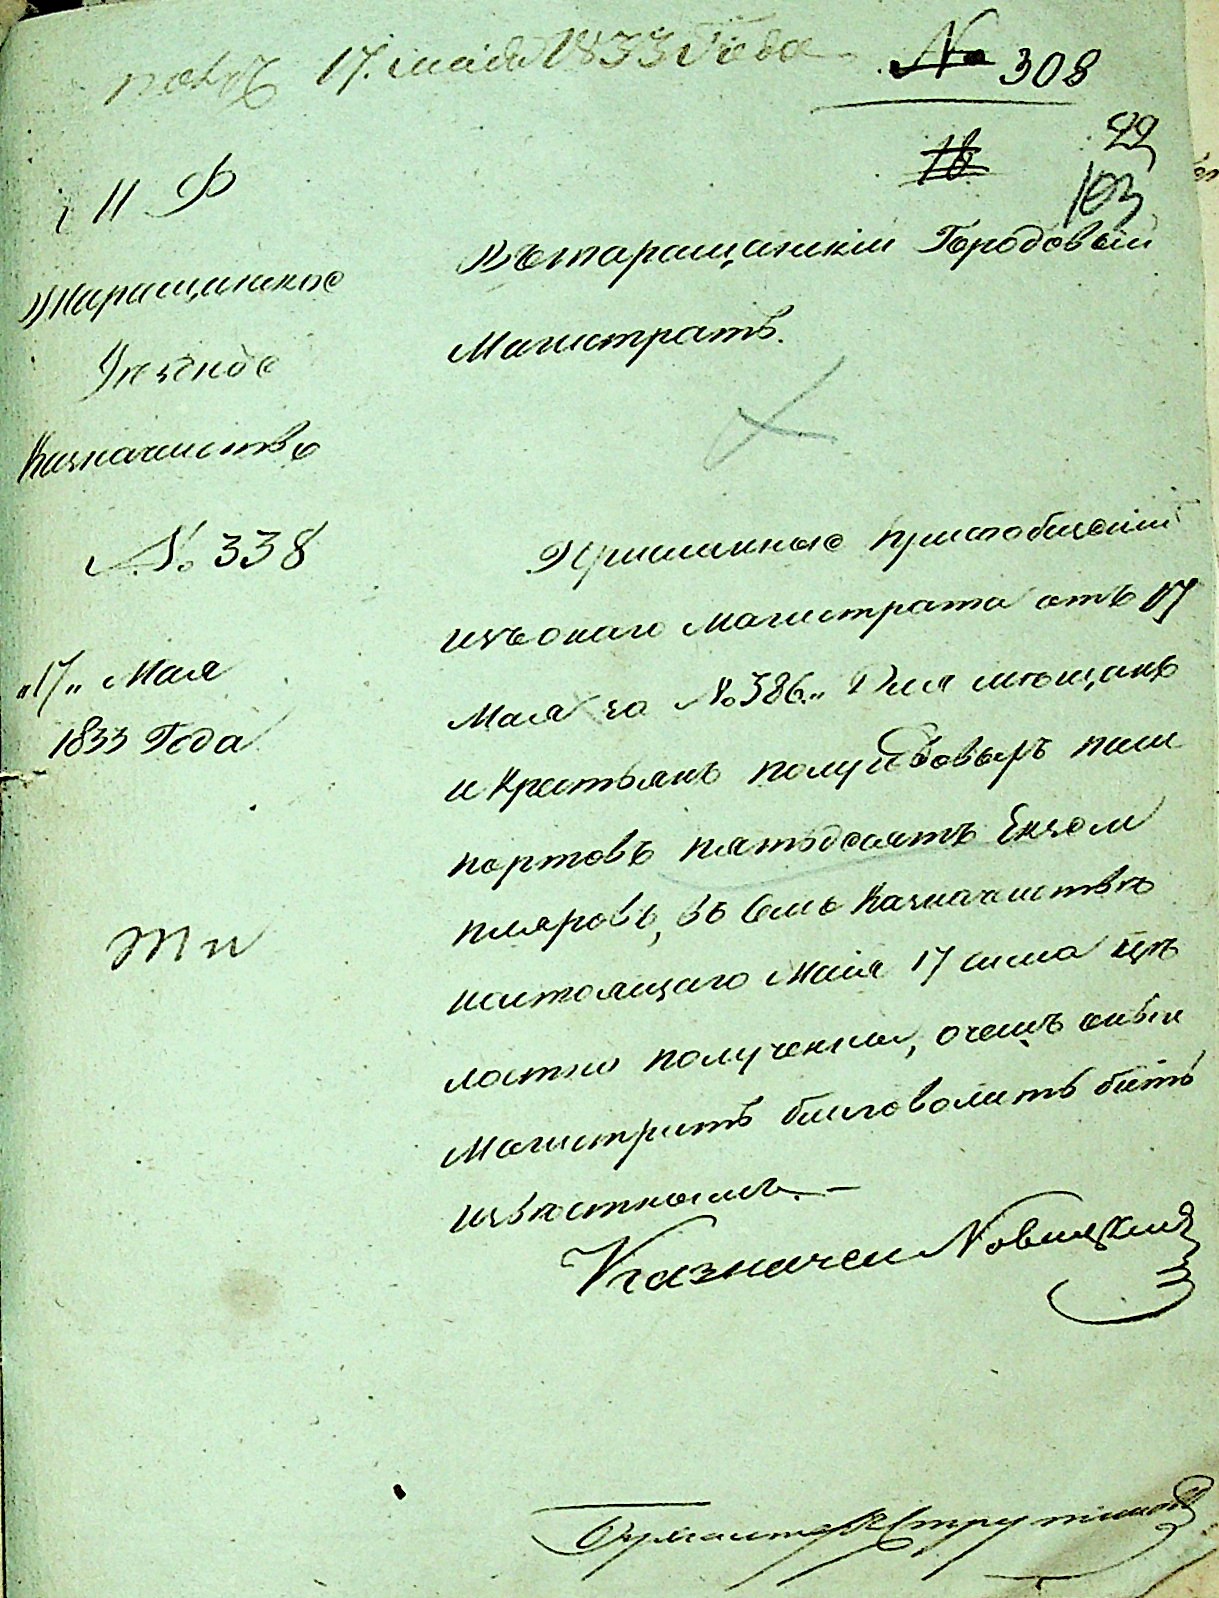 17. маія 1833 Года
№ 308
22
103
М Ф
Таращанское
Уездное
Казначейство
№ 338
"17" Мая
1833 Года
Въ таращанскій Городовый
Магистратъ.
Присланные при сообщеніи
изъ онаго Магистрата отъ 17
Мая за № 386. Для мещанъ
и Крестьянъ полугодовыхъ паш
портовъ пятьдесятъ Екзем
пляровъ, въ семъ Казначействе
настоящаго Маія 17 числа цѣ
лостно получены, о чемъ оный
Магистратъ благоволитъ быть
извѣстнымъ. —
Казначей Новицкий
Бухгалтеръ